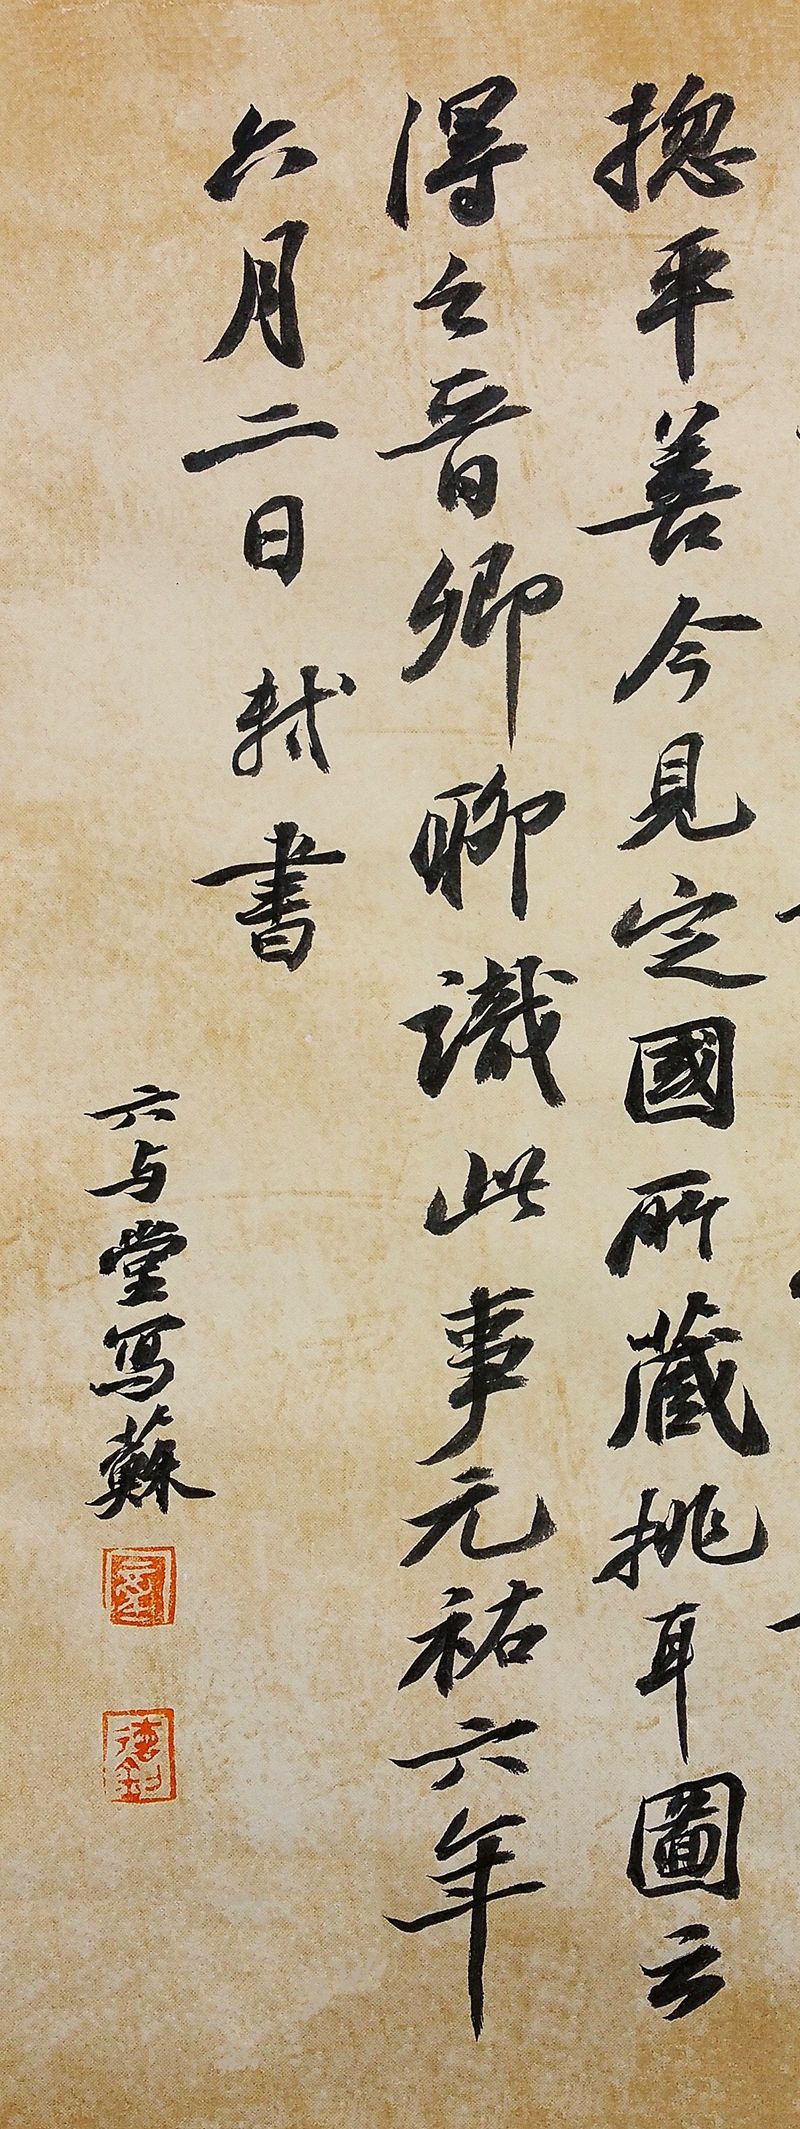 揔平善今見定國所藏挑耳圖云
得之晉卿聊識此事元祐六年
六月二日軾書
六与堂寫蘇